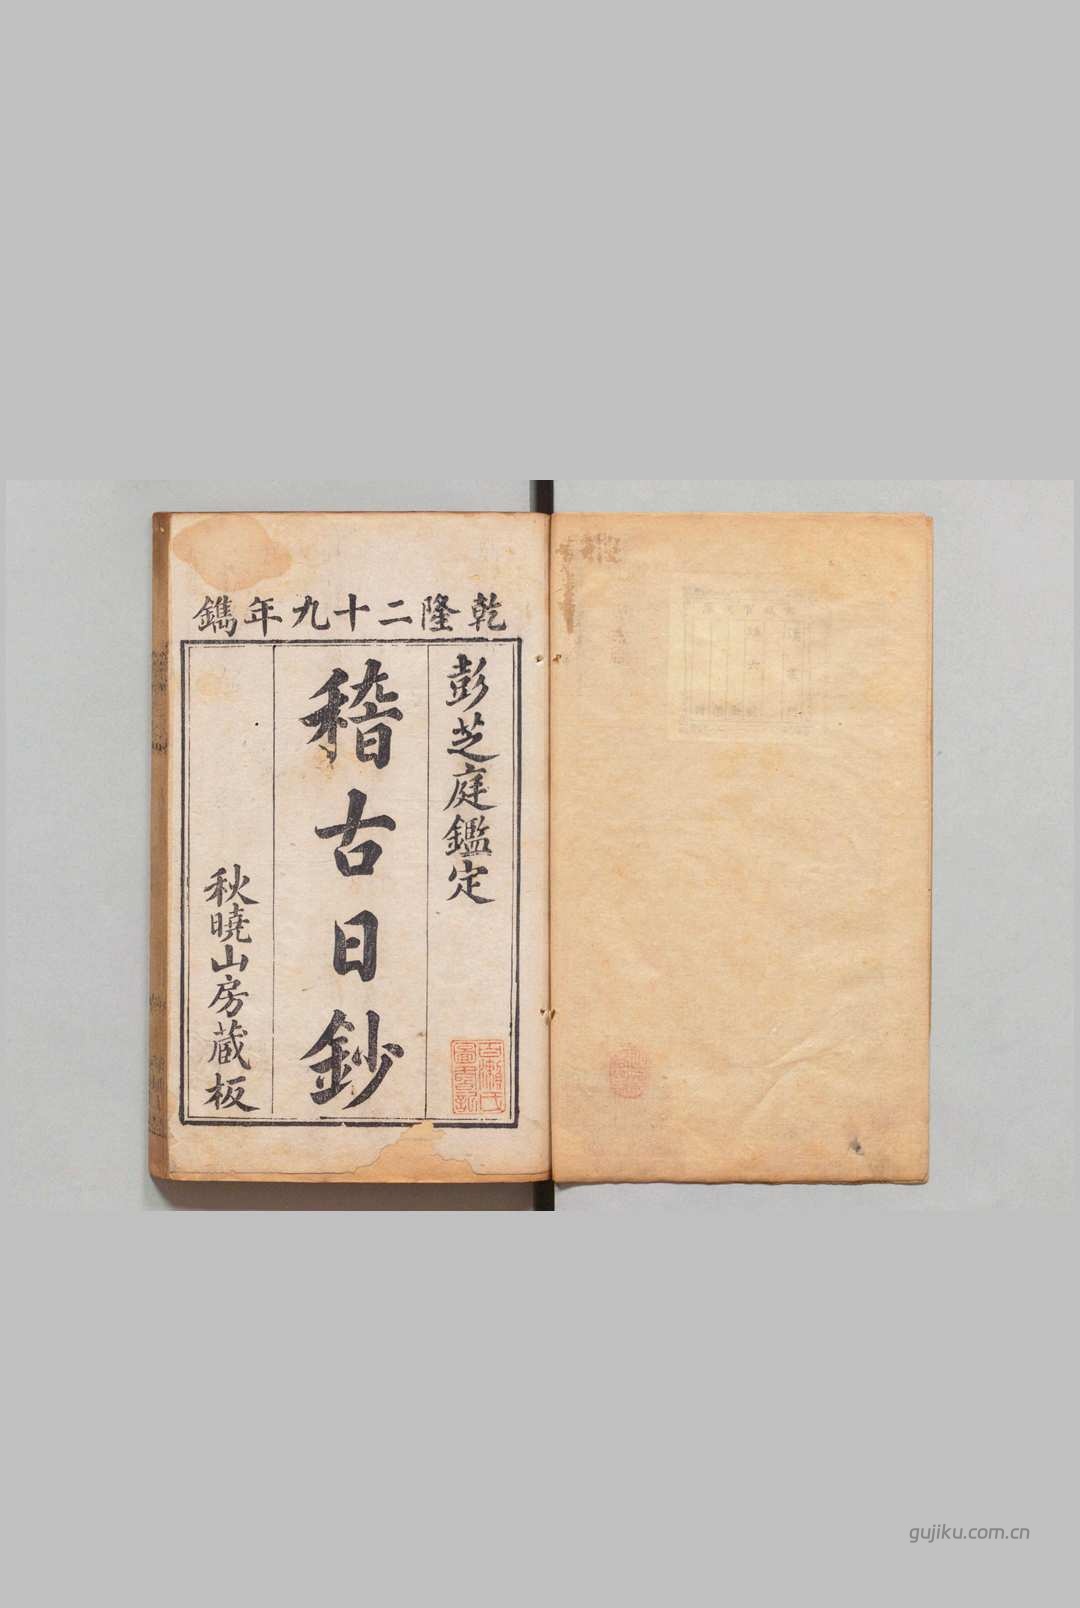 乾隆二十九年鐫
彭芝庭鑑定
稽古日鈔
秋曉山房蔵板
gujiku.com.cn